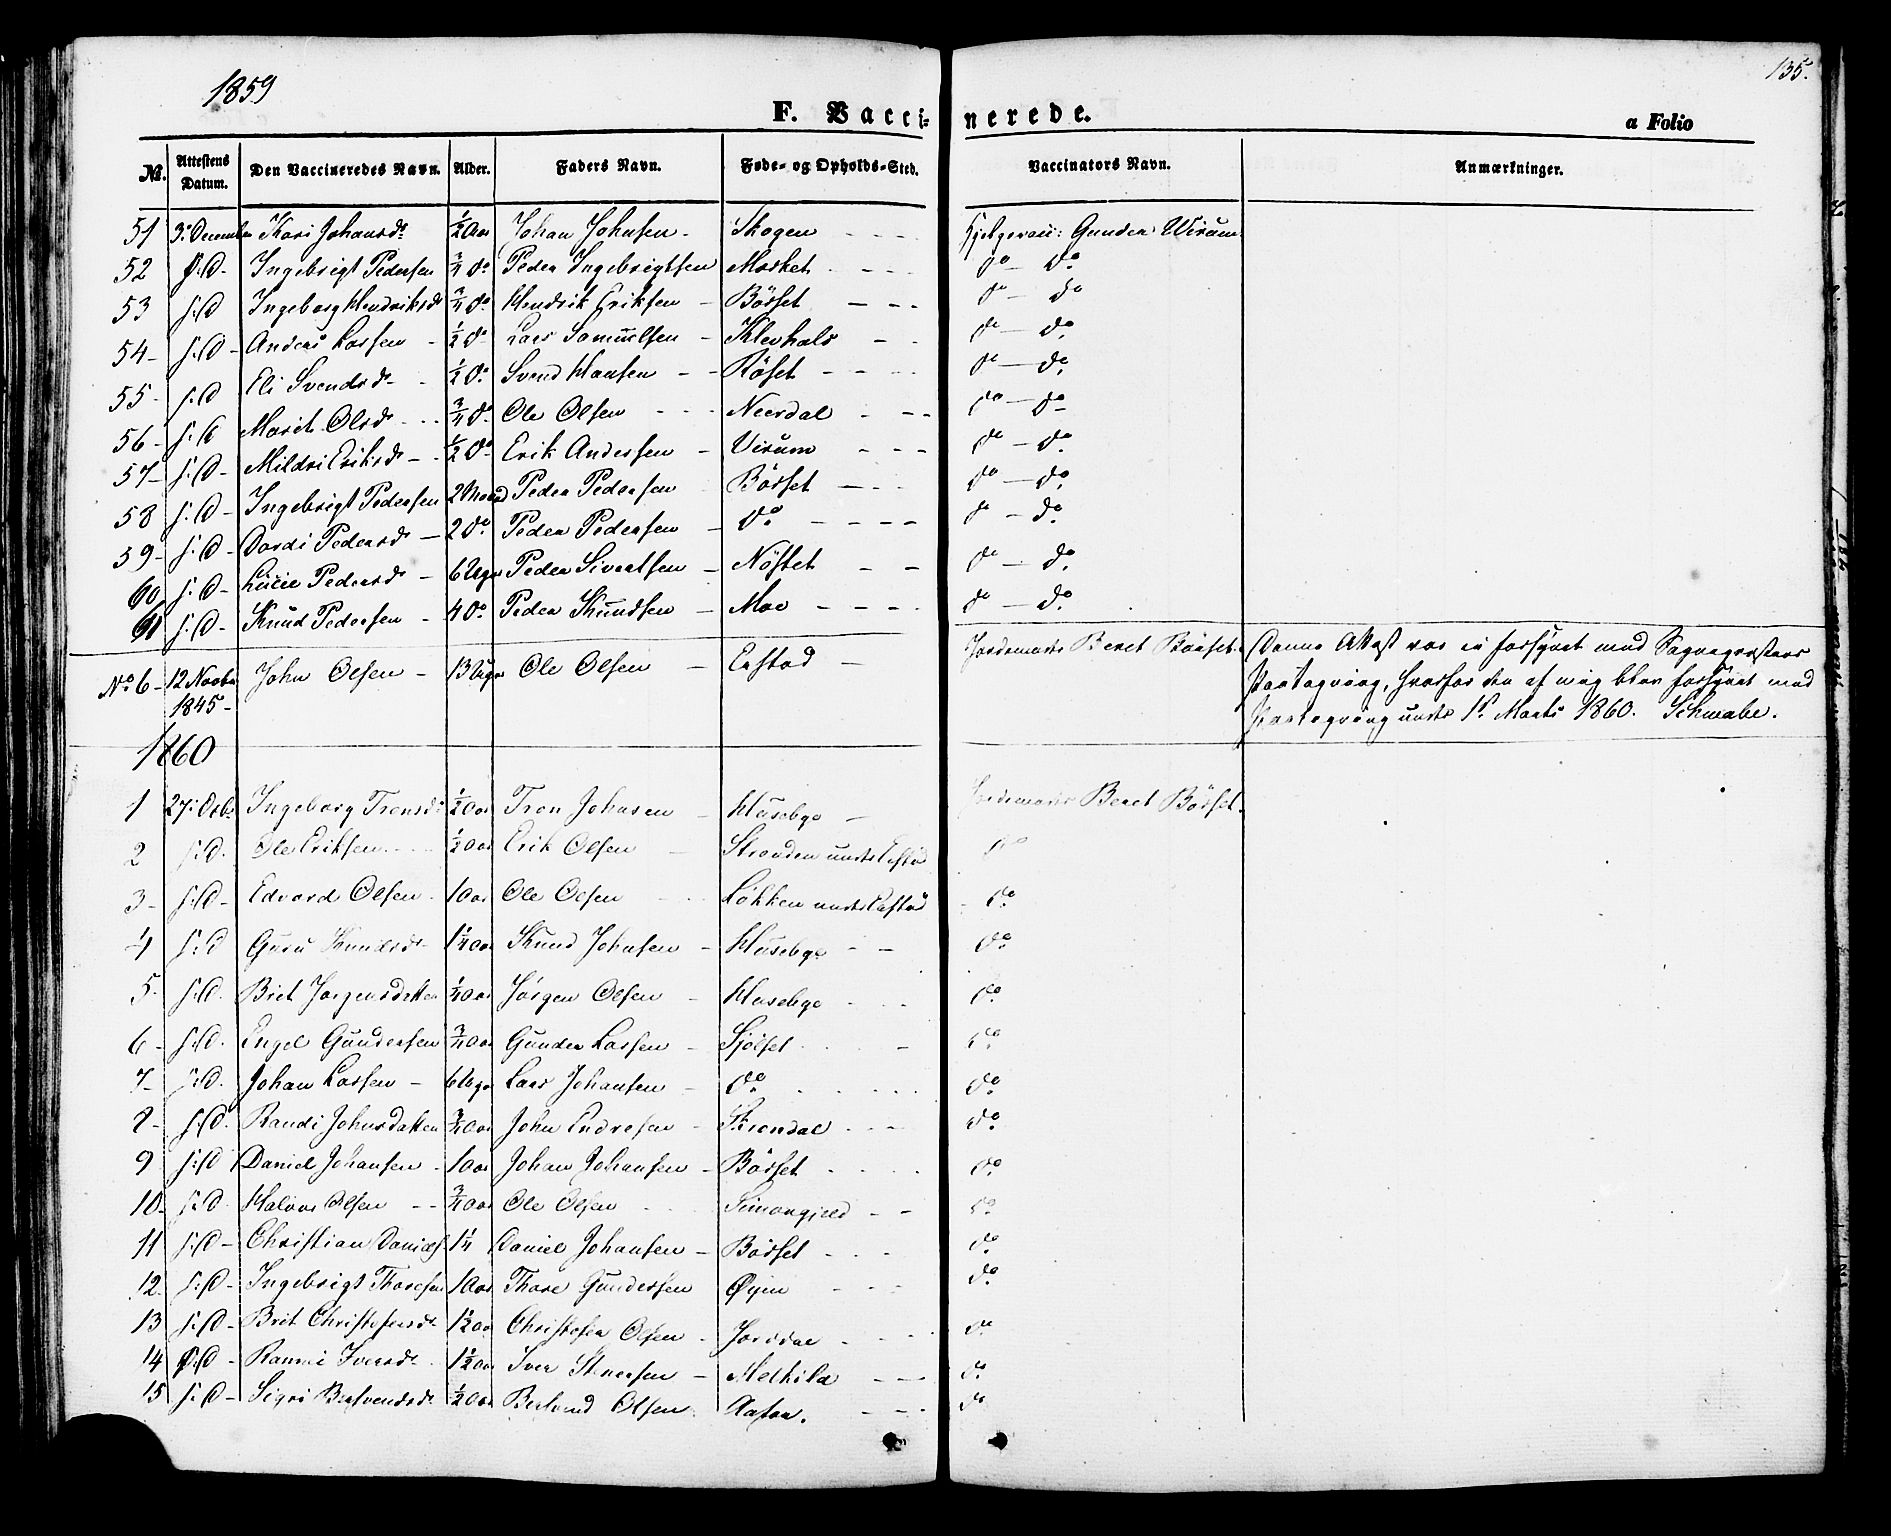 1859
135.
F. Vaccinerede.
a Folio
No. Attestens Datum. Den Vaccineredes Navn. Alder. Faders Navn. Føde- og Opholds-Sted. Vaccinators Navn. Anmærkninger.
51 3e December Kari Johansdr ½ Aar Johan Johnsen - Skogen - - - Gunder Wirum
52 S:D- Ingebrigt Pedersen ¾ do Peder Ingebrigtsen Morket - - - do - do
53 S:D Ingeborg Hendriksdr ¾ do Hendrik Eriksen - Böeset - - - do - do
54- S:D- Anders Larsen - ½ do Lars Samuelsen - Klevhals - - do - do
55- S:D Eli Svendsdr - ½ do Svend Hansen - - Röset - - - do - do
56- S:D Marit Olsdr - - ¾ do Ole Olsen - - - Neerdal - - - do - do
57- S:D- Mildri Eriksdr - - ½ do Erik Andersen - Virum - - - do - do
58 S:D- Ingebrigt Pedersen 2 Maaned Peder Pedersen Böeset - - - do - do
59- S:D- Dordi Pedersdr - 2 do Peder Pedersen - do - - - - do - do
60 S:D- Lucie Pedersdr - 6 Uger Peder Sivertsen - Nöstet - - do - do
61 S:D- Knud Pedersen - 4 do Peder Knudsen - Moe - - - - do - do
No 6- 12 Novbr John Olsen - 13 Uger Ole Olsen - Eestad - Jordemoder Beret Böeset. Denne Attest var ei forsynet med Sogneprestens
1845- Paategning, hvorfor den af mig blev forsynet med
Paategning under 1ste Marts 1860. Schwabe.
1860
1 27: Octbr Ingeborg Tronsdr ½ Aar Tron Johnsen - Husebye - Jordemoder Beret Böeset.
2 S:D. Ole Eriksen - - - ½ Aar Erik Olsen - Stranden under Eestad do
3- S:D- Edvard Olsen - 1 Aar Ole Olsen - Lökken under Eestad - do
4 S:D Guru Knudsdr - 1¼ Aar Knud Johnsen - Husebye - - do
5- S:D. Brit Jørgensdatter ¼ Aar Jørgen Olsen - Husebye - - - do
6- S:D. Engel Gundersen ¾ Aar Gunder Larsen - Sjölset - - do
7- S:D. Johan Larsen - 6 Uger Lars Johansen - do - - - - do
8- S:D. Randi Johnsdatter ¾ Aar John Endresen - Strondal - - - do
9 S:D Daniel Johansen - 1 Aar Johan Johansen - Böeset - - - - do
10- S:D Halvor Olsen - - ¾ Aar Ole Olsen - - Simongjeld - - do
11 S:D- Christian Daniels. 1¼ Daniel Johansen - Böeset - - - do
12- S:D- Ingebrigt Thoresen 1 Aar Thore Gundersen Øyen - - - do
13 S:D- Brit Christofersdr 1½ Aar Christofer Olsen - Jordal - - - do
14 S:D - Rannei Iversdr - 1½ Aar Iver - Melkild - - - do
15 S:D- Sigri Bersvendsdr ½ Aar Bersvend Olsen - - - do